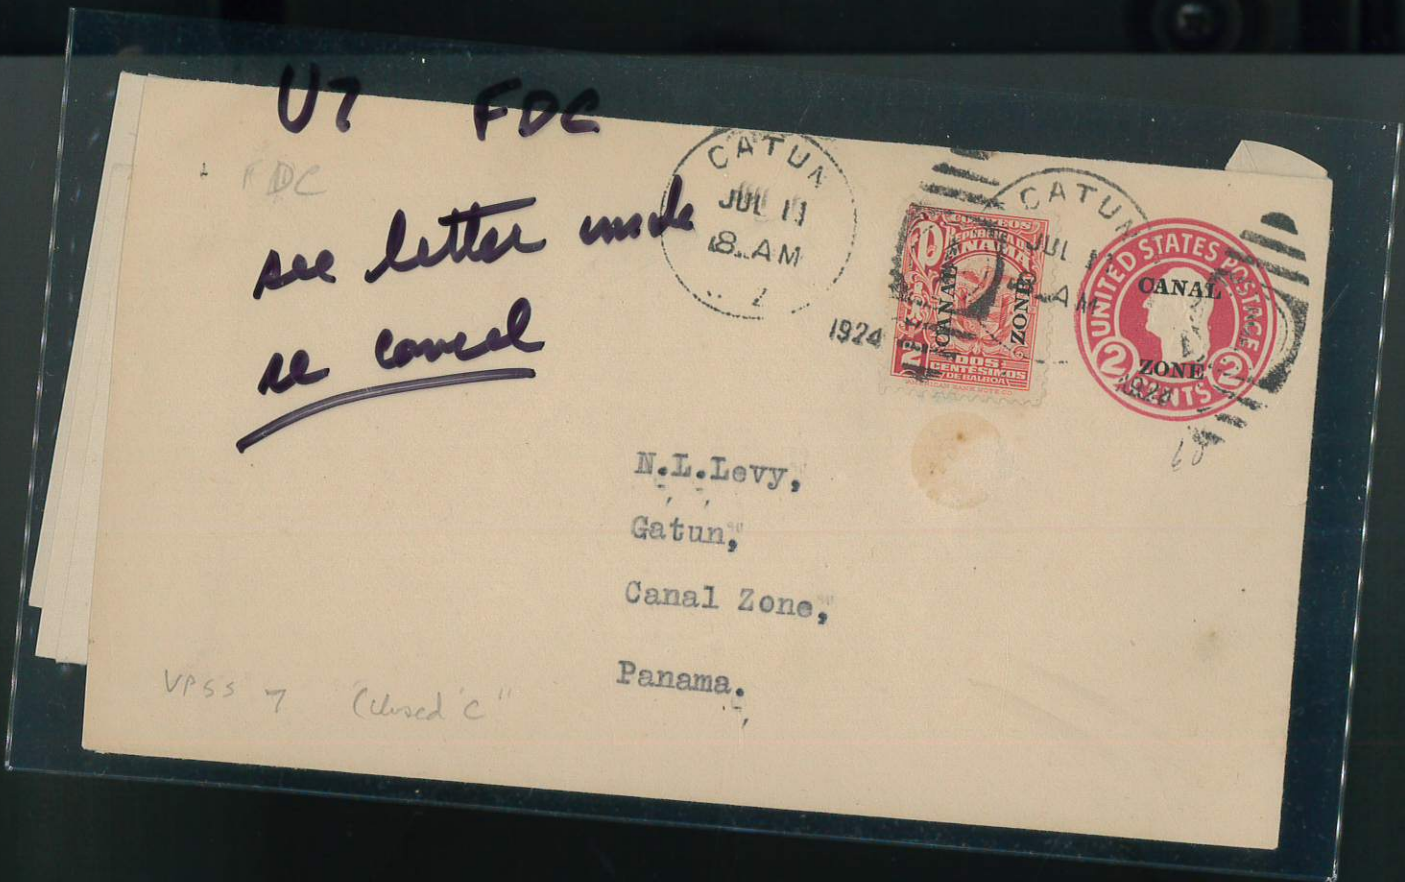 U7 FDC
FDC
see letter inside
re cancel
CATUN
JUL 11
8 AM
1924
CORREOS
REPUBLICA DE
PANAMA
CANAL ZONE
2
DOS
CENTÉSIMOS
DE BALBOA
CATUN
JUL
AM
1924
UNITED STATES POSTAGE
CANAL
ZONE
2 CENTS 2
N.L.Levy,
Gatun,
Canal Zone,
Panama.
VPSS 7 (closed "C"